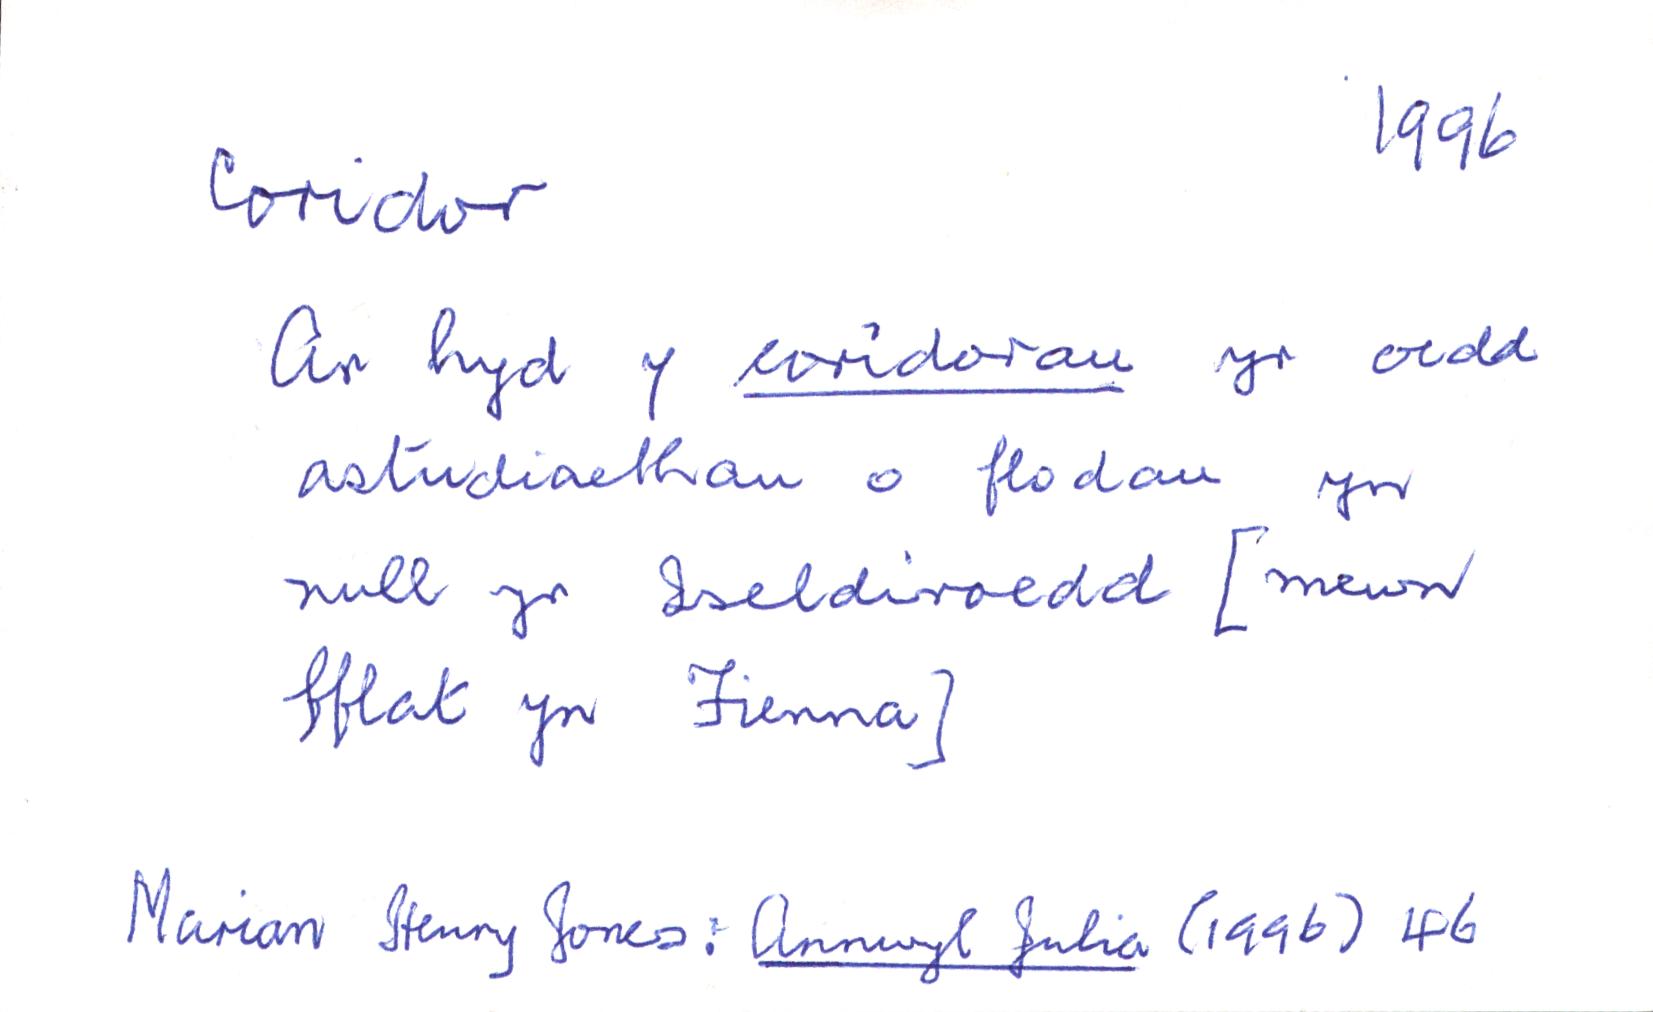 1996
Coridor
Ar hyd y coridorau yr oedd
astudiaethau o flodau yn
null yr Iseldiroedd [mewn
fflat yn Fienna]
Marian Henry Jones: Annwyl Julia (1996) 46